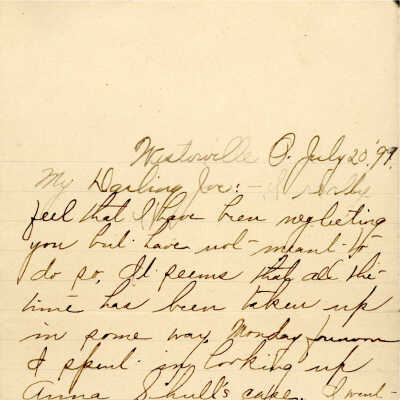 Westerville O. July 20, '99.
My Darling Joe: - I really
feel that I have been neglecting
you but have not meant to
do so, It seems that all the
time has been taken up
in some way, Monday forenoon
I spent in looking up
Anna Shull's cake. I went